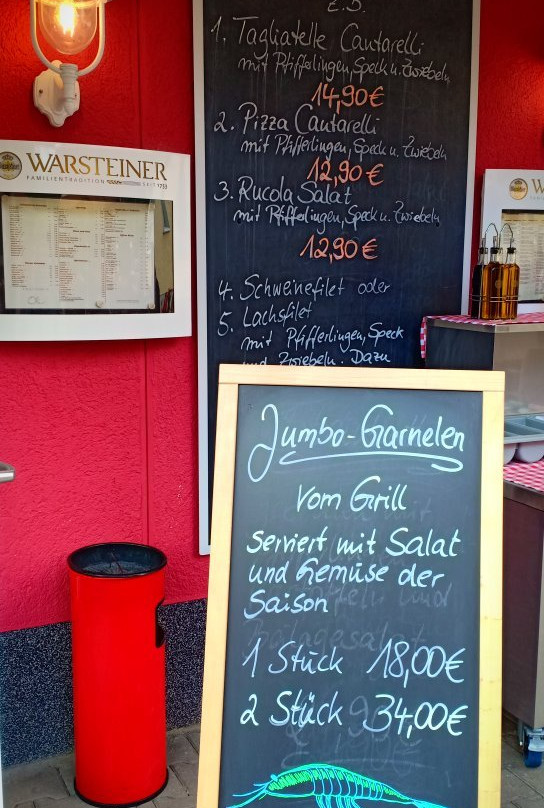 z.B.
1. Tagliatelle Cantarelli
mit Pfifferlingen, Speck u. Zwiebeln
14,90€
2. Pizza Cantarelli
mit Pfifferlingen, Speck u. Zwiebeln
12,90€
3. Rucola Salat
mit Pfifferlingen, Speck u. Zwiebeln
12,90€
4. Schweinefilet oder
5. Lachsfilet
mit Pfifferlingen, Speck
und Zwiebeln. Dazu
WARSTEINER
FAMILIENTRADITION SEIT 1753
W
FAMI
Jumbo-Garnelen
vom Grill
serviert mit Salat
und Gemüse der
Saison
1 Stück 18,00€
2 Stück 34,00€